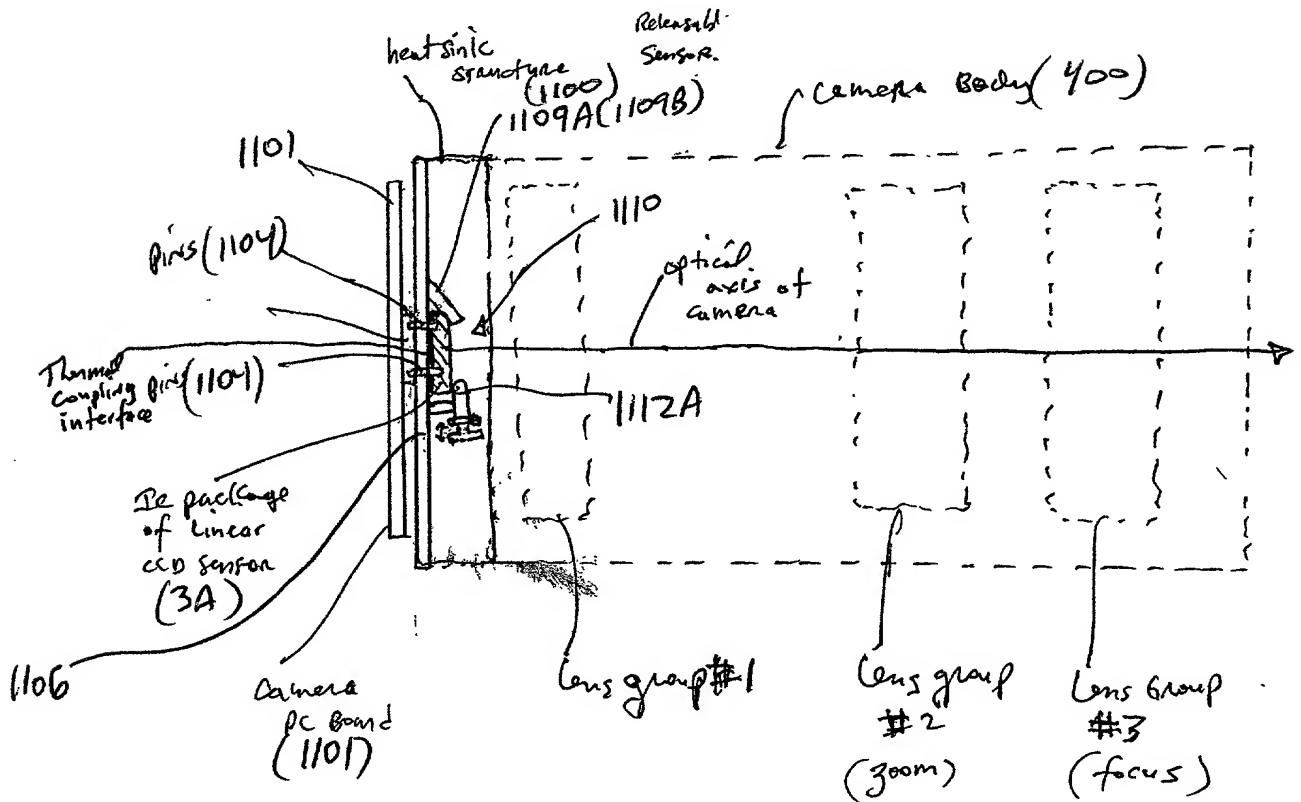 heatsink
structure
(1100)
Releasabl.
Sensor.
1109A(1109B)
Camera Body(400)
1101
pins(1104)
1110
optical
axis of
camera
Thermal
coupling
interface
pins(1104)
1112A
Ic package
of Linear
CCD Sensor
(3A)
1106
Camera
PC Board
(1101)
Lens group #1
Lens group
#2
(zoom)
Lens Group
#3
(focus)